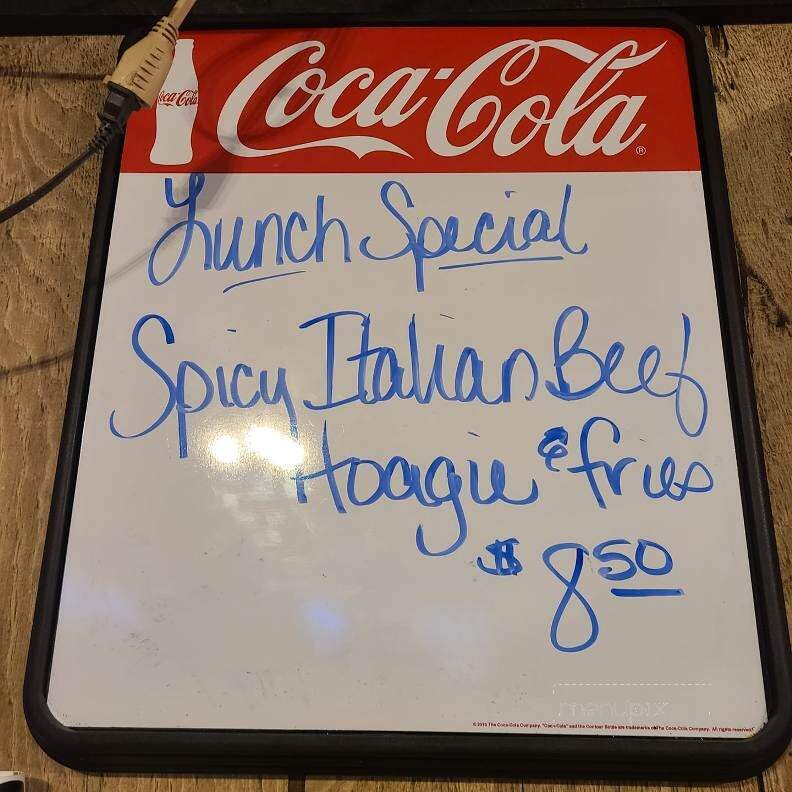 Coca-Cola
Coca-Cola ®
Lunch Special
Spicy Italian Beef
Hoagie & fries
$8.50
menupix
© 2015 The Coca-Cola Company. "Coca-Cola" and the Contour Bottle are trademarks of The Coca-Cola Company. All rights reserved.